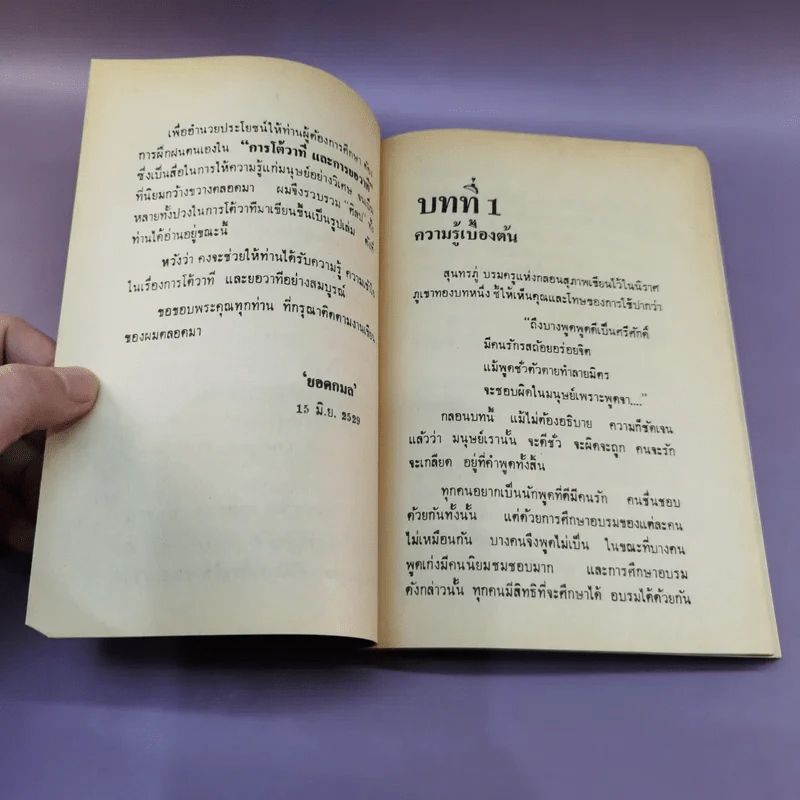 เพื่ออำนวยประโยชน์ให้ท่านผู้ต้องการศึกษา
การฝึกฝนตนเองใน "การโต้วาที และการยอวาที"
ซึ่งเป็นสื่อในการให้ความรู้แก่มนุษย์อย่างวิเศษ
ที่นิยมกว้างขวางตลอดมา ผมจึงรวบรวม "ศิลป"
หลายทั้งปวงในการโต้วาทีมาเขียนขึ้นเป็นรูปเล่ม
ท่านได้อ่านอยู่ขณะนี้
หวังว่า คงจะช่วยให้ท่านได้รับความรู้
ในเรื่องการโต้วาที และยอวาทีอย่างสมบูรณ์
ขอขอบพระคุณทุกท่าน ที่กรุณาติดตามงานเขียน
ของผมตลอดมา
'ยอดกมล'
15 มิ.ย. 2529
บทที่ 1
ความรู้เบื้องต้น
สุนทรภู่ บรมครูแห่งกลอนสุภาพเขียนไว้ในนิราศ
ภูเขาทองบทหนึ่ง ชี้ให้เห็นคุณและโทษของการใช้ปากว่า
"ถึงบางพูดพูดดีเป็นศรีศักดิ์
มีคนรักรสถ้อยอร่อยจิต
แม้พูดชั่วตัวตายทำลายมิตร
จะชอบผิดในมนุษย์เพราะพูดจา...."
กลอนบทนี้ แม้ไม่ต้องอธิบาย ความก็ชัดเจน
แล้วว่า มนุษย์เรานั้น จะดีชั่ว จะผิดจะถูก คนจะรัก
จะเกลียด อยู่ที่คำพูดทั้งสิ้น
ทุกคนอยากเป็นนักพูดที่ดีมีคนรัก คนชื่นชอบ
ด้วยกันทั้งนั้น แต่ด้วยการศึกษาอบรมของแต่ละคน
ไม่เหมือนกัน บางคนจึงพูดไม่เป็น ในขณะที่บางคน
พูดเก่งมีคนนิยมชมชอบมาก และการศึกษาอบรม
ดังกล่าวนั้น ทุกคนมีสิทธิที่จะศึกษาได้ อบรมได้ด้วยกัน